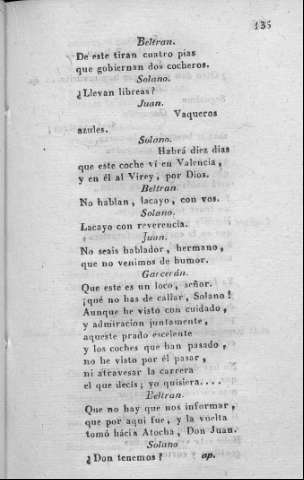 135
Beltran.
De este tiran cuatro pias
que gobiernan dos cocheros.
Solano.
¿Llevan libreas?
Juan.
Vaqueros
azules.
Solano.
Habrá diez dias
que este coche ví en Valencia,
y en él al Virey, por Dios.
Beltran.
No hablan, lacayo, con vos.
Solano.
Lacayo con reverencia.
Juan.
No seais hablador, hermano,
que no venimos de humor.
Garcerán.
Que este es un loco, señor.
¡qué no has de callar, Solano!
Aunque he visto con cuidado,
y admiracion juntamente,
aqueste prado escelente
y los coches que han pasado,
no he visto por él pasar,
ni atravesar la carrera
el que decís; yo quisiera....
Beltran.
Que no hay que nos informar,
que por aqui fue, y la vuelta
tomó hácia Atocha, Don Juan.
Solano
¿Don tenemos? ap.